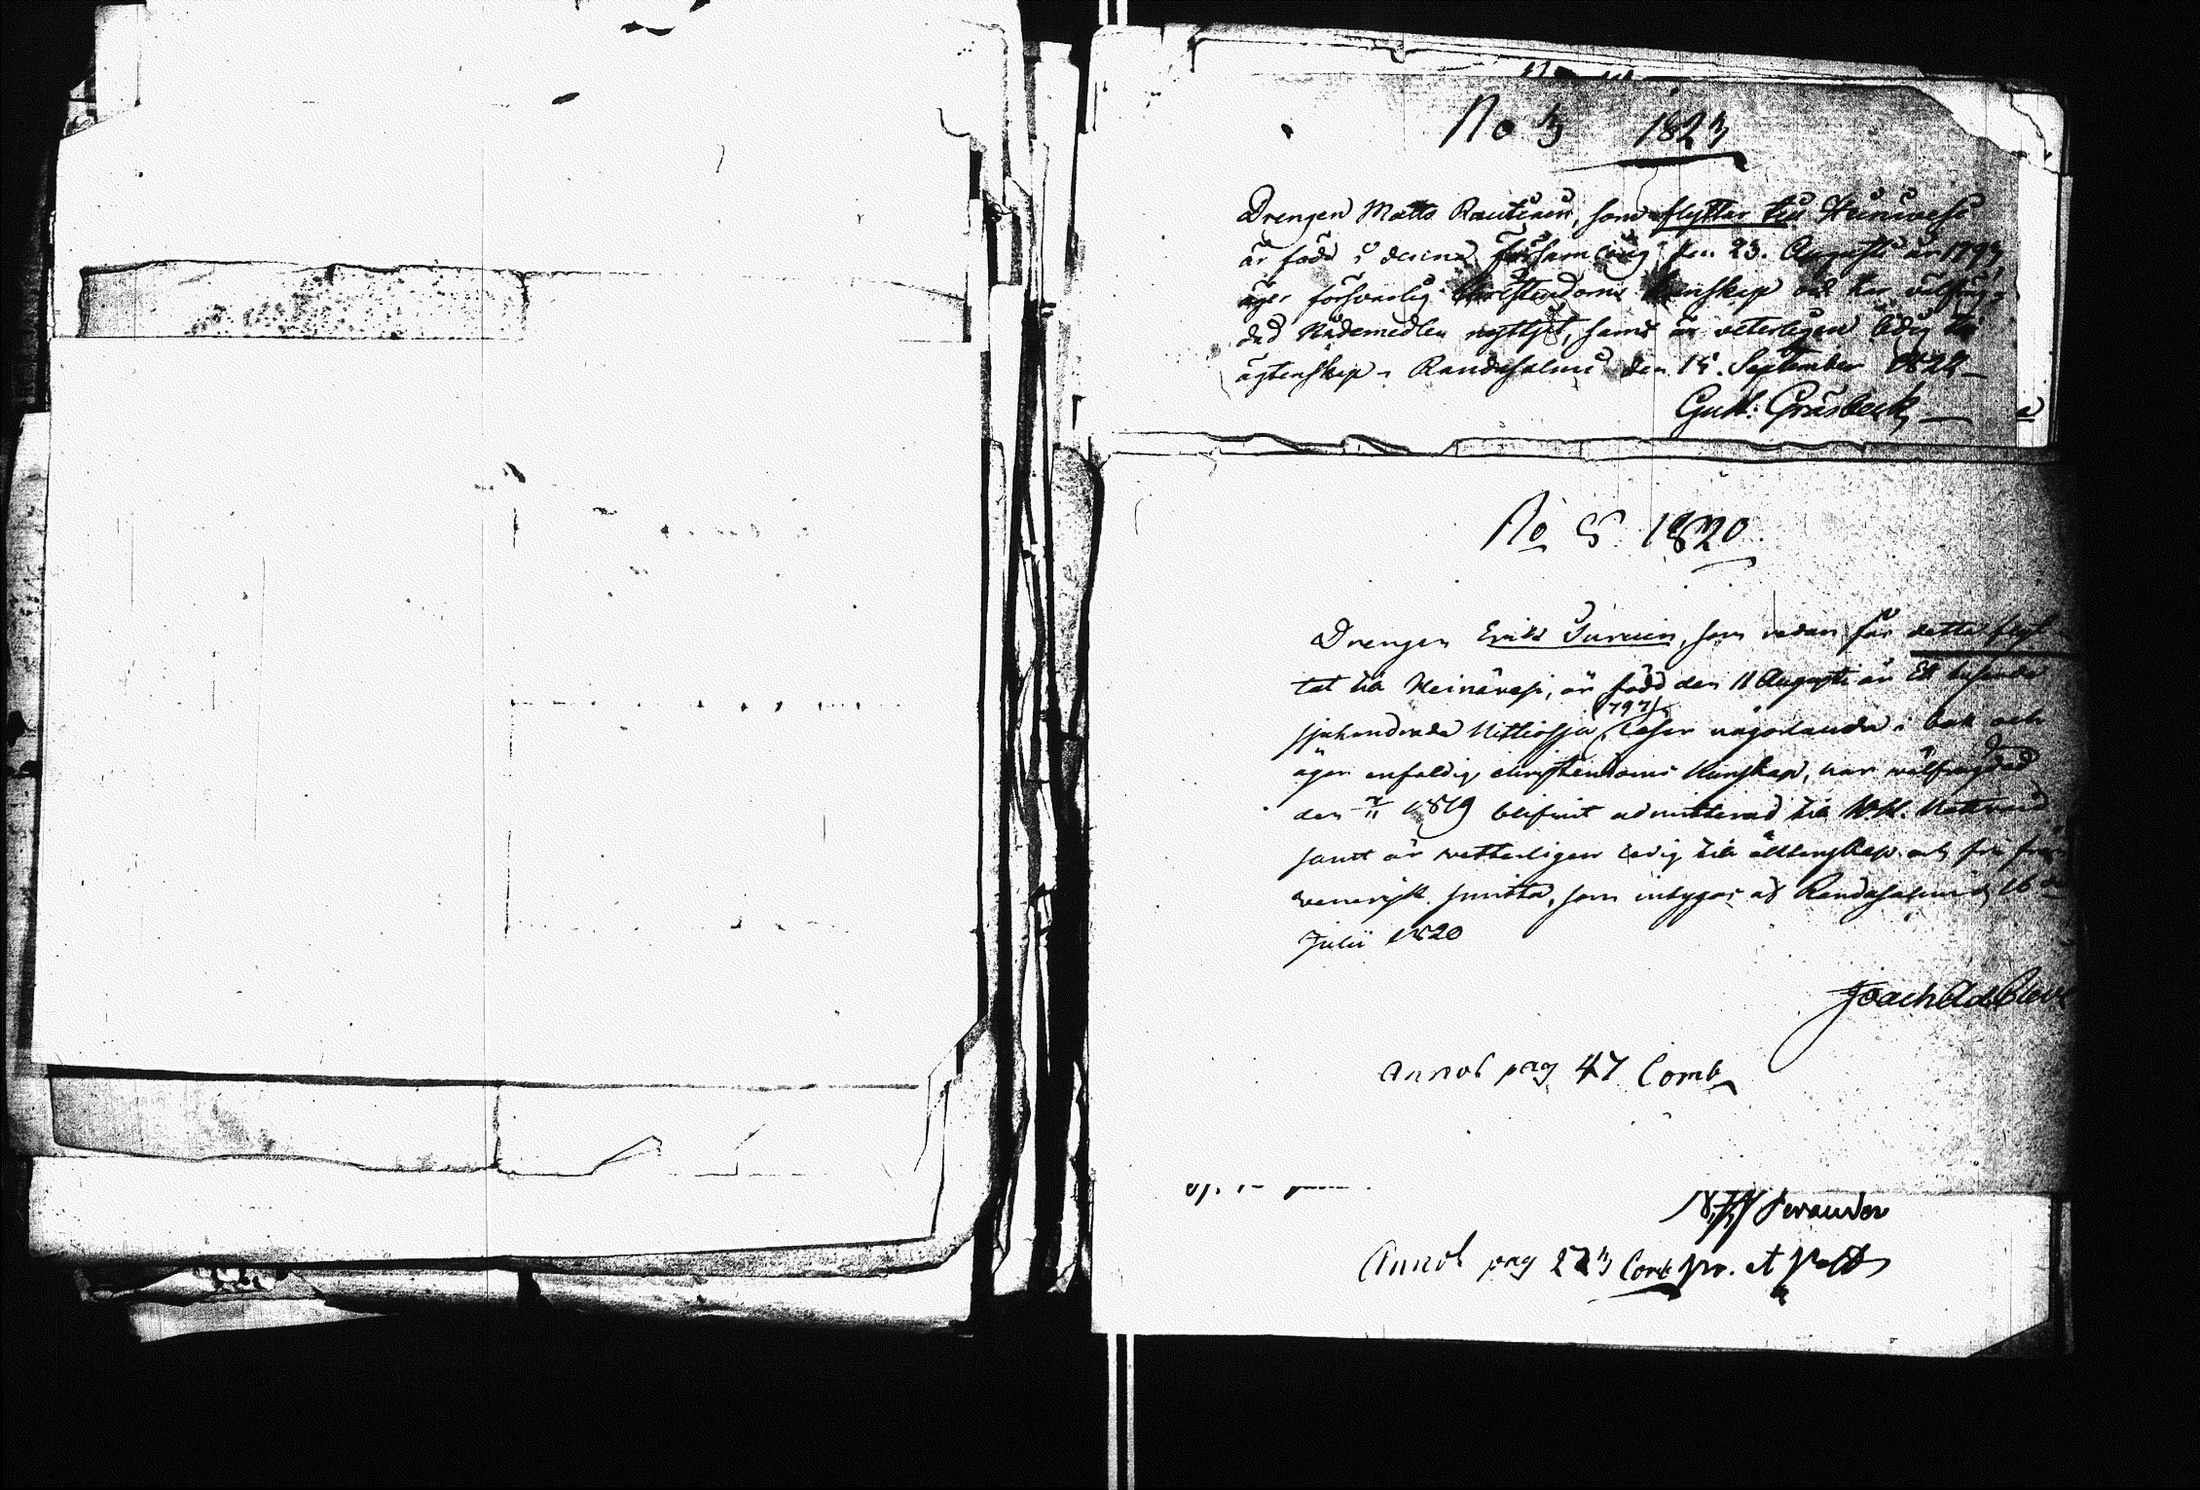 No 3 1823
Drengen Matts Rautiain, som flyttar till Heinävesi
är född i denna församling den 23. Augusti år 1793
äger försvarlig Christendoms kunskap och har välfräg-
dad Nådemedlen nyttjat, samt är veterligen ledig till
ägtenskap. Randasalmi den 15. September 1822
Gust: Gråsbeck
No 8. 1820
Drengen Erik Turuin, som redan för detta flyt-
tat till Heinävesi, är född den 11 Augusti år Ett tusende
(797)
sjuhundrade Nittiosju, läser någorlunda i bok och
äger enfaldig christendoms kunskap, har välfrägdad
den 7/11 1819 blifvit admitterad till H.H. Nattvard
samt är vetterligen ledig till ächtenskap och fri från
venerisk smitta, som intygas af Randasalmi d. 16
Julii 1820
Joach Ad
Annot pag 47 Comb
Annot pag 273 Comb pr. et